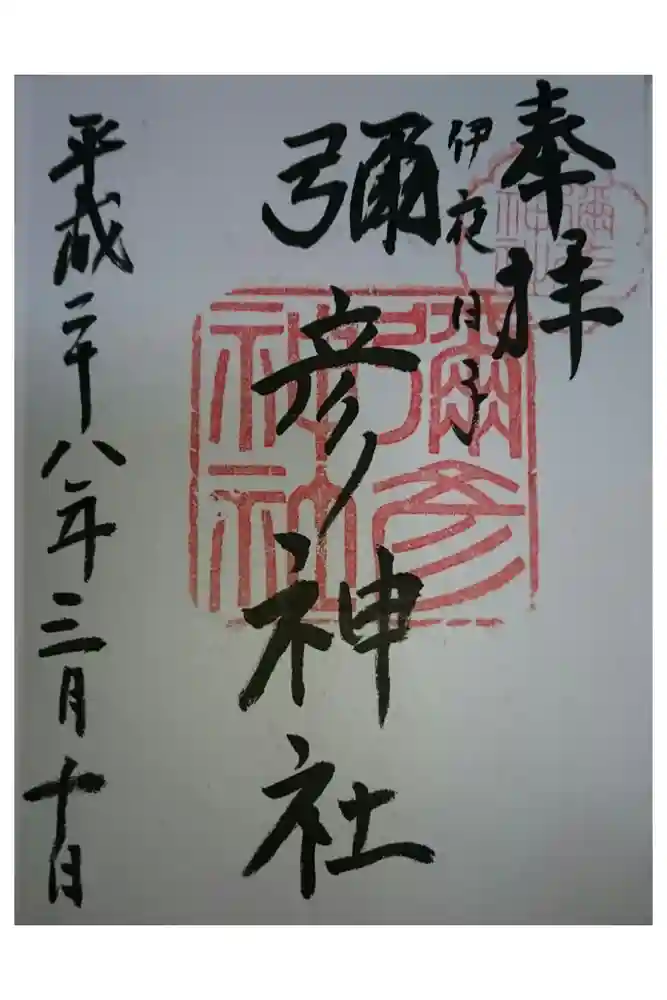 奉拝
伊夜日子
彌彦神社
平成二十八年三月十日
彌彦
神社